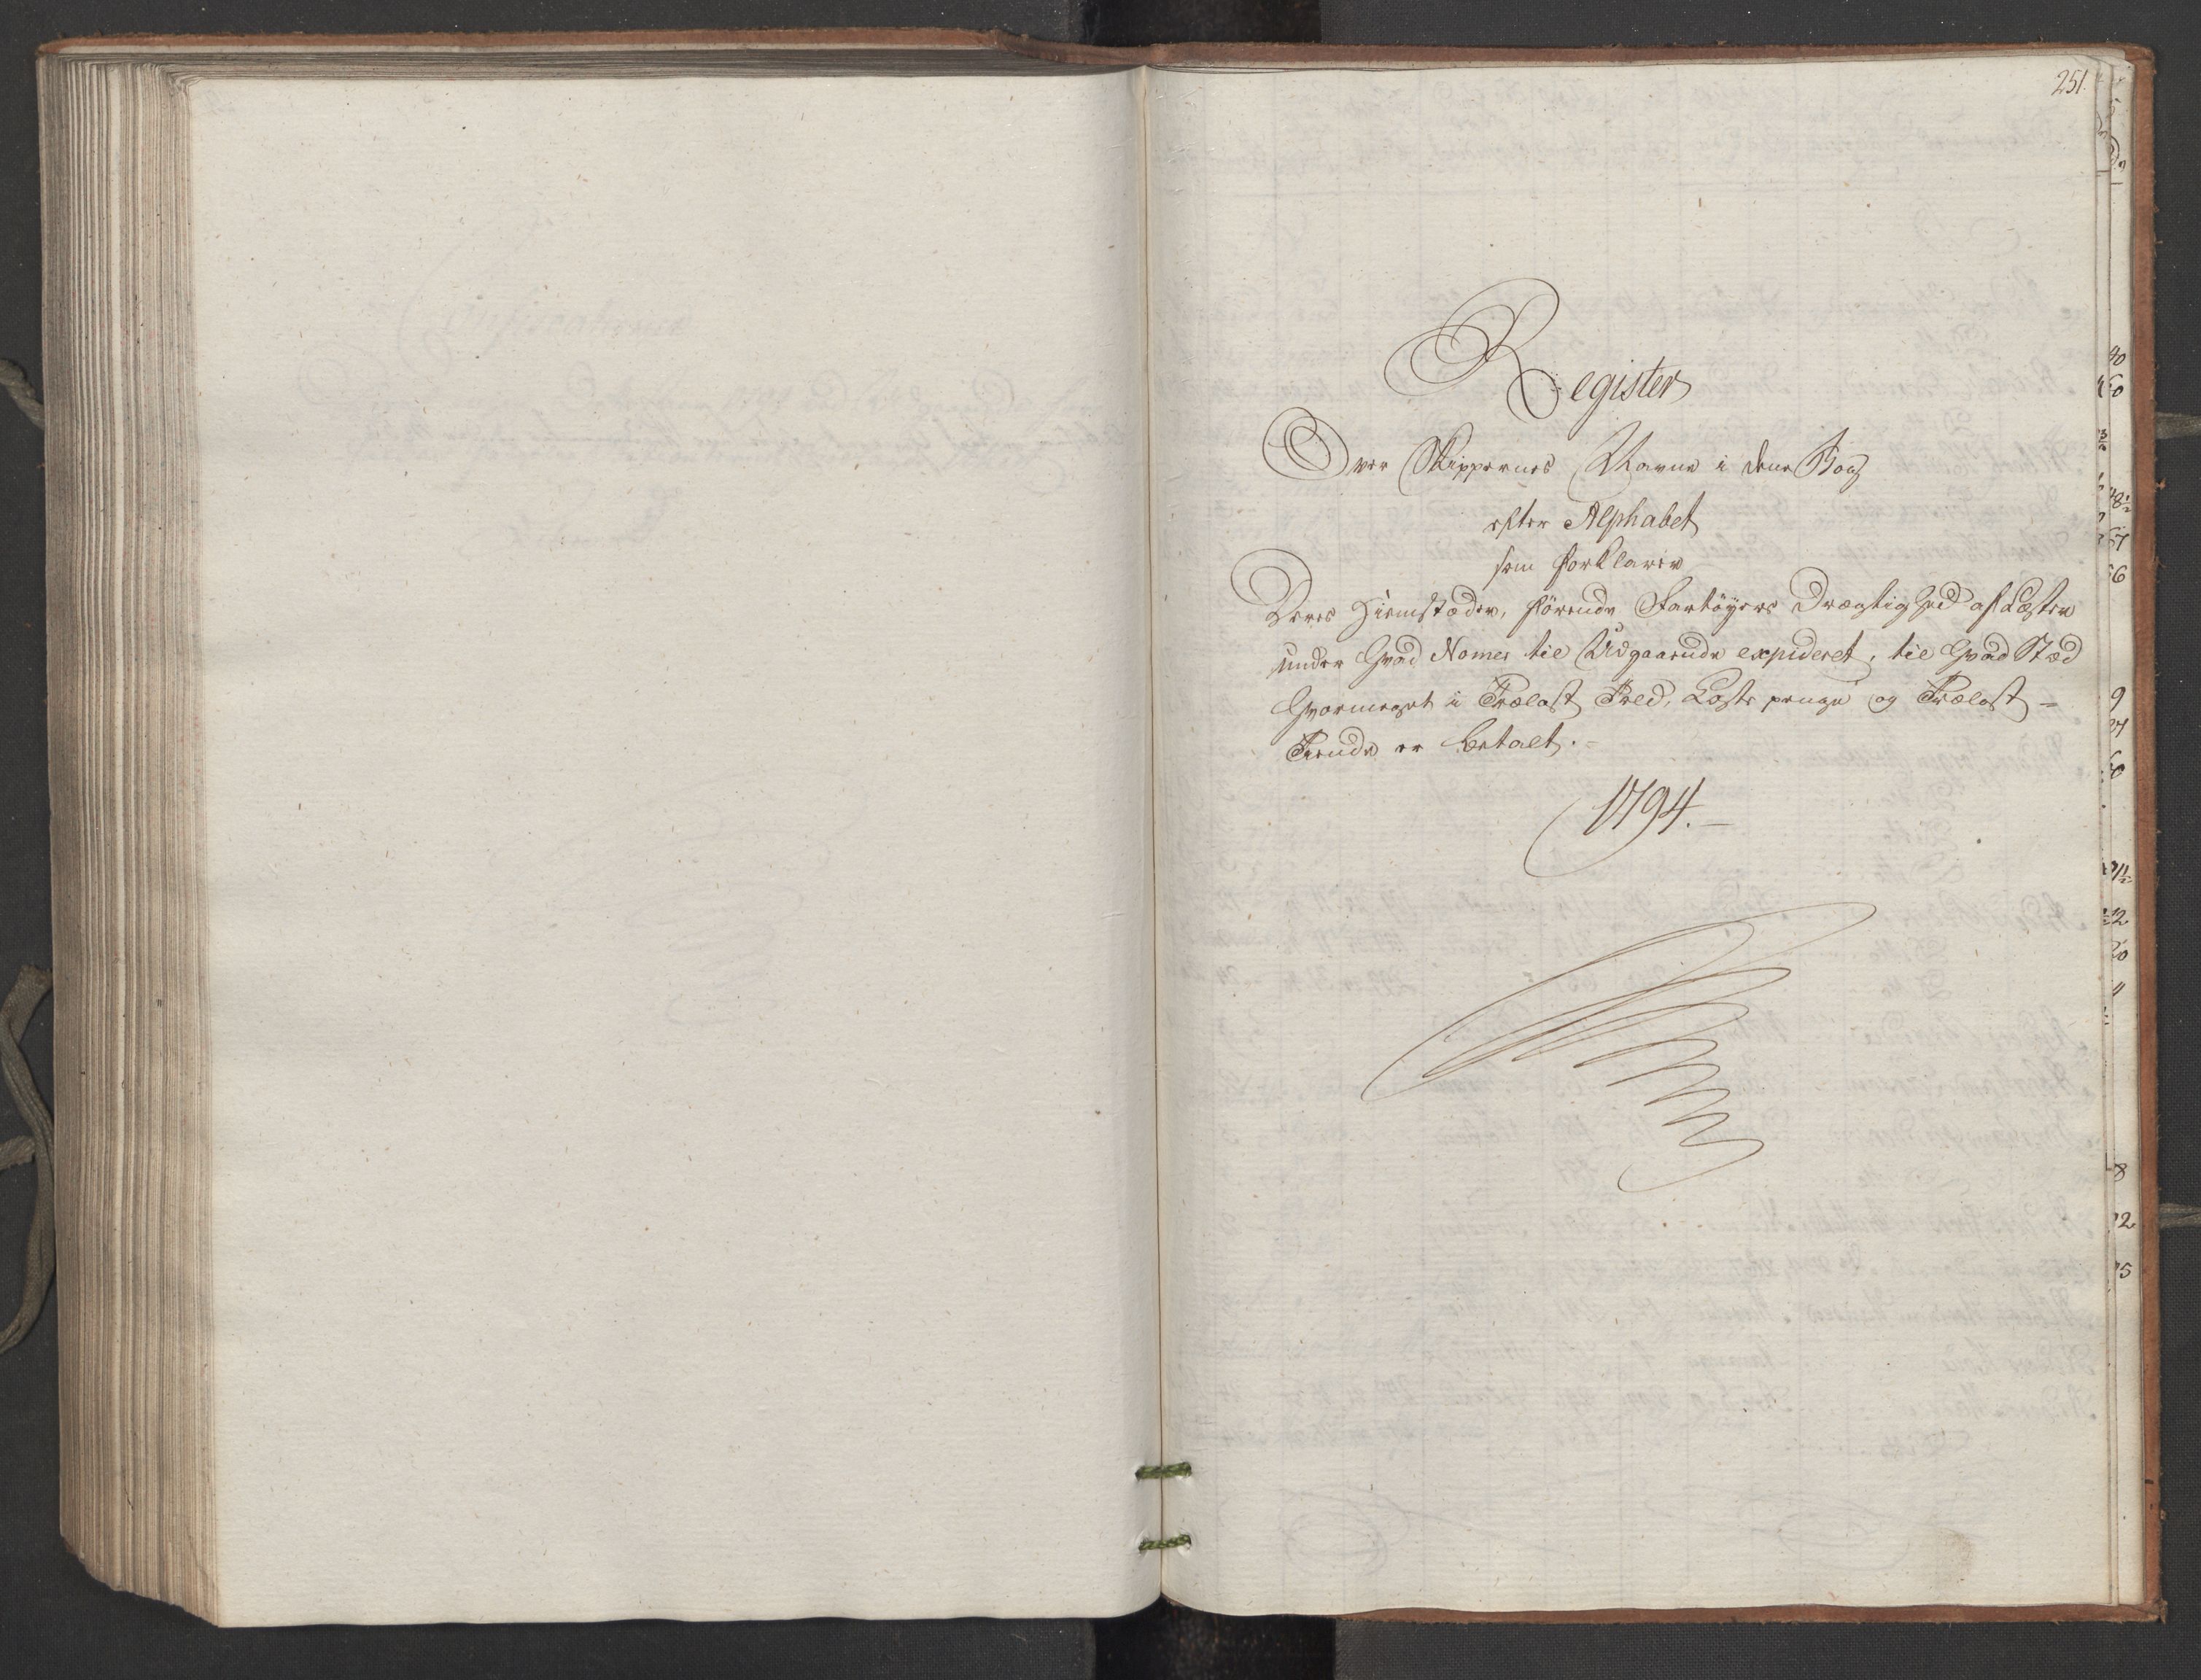 251.
Register
Over Skippernes Navne i denne Bog
efter Alphabet
som forklarer
Deres Hiemstæder, förende Fartöyers Drægtighed af Læster
under hvad Nomer til Udgaaende expederet, til hvad Stæd
hvormeget i Trælast Told, Læste penge og Trælast =
Tiende er betalt. =
1794. –